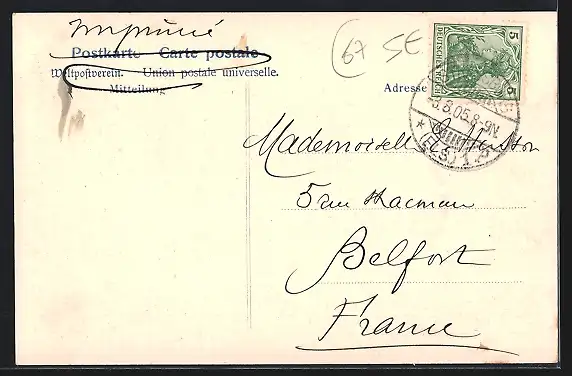 Imprimé
Postkarte Carte postale
Weltpostverein. Union postale universelle.
Mitteilung
67 SE
DEUTSCHES REICH
5
5
Adresse
8.05.8-9N.
* (ELS) 1
Mademoiselle
5 rue
Belfort
France